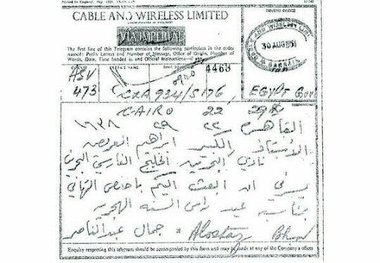 CABLE AND WIRELESS LIMITED
VIA IMPERIAL
The first line of this Telegram contains the following particulars in the order
named: Prefix Letters and Number of Message, Office of Origin, Number of
Words, Date, Time handed in and Official Instructions, if any.
4463
30 AUG
473 CXA924/S176, EGYPT Gov
CAIRO 22 29
القاهرة ٢٢ ٢٩
الاستاذ الكبير ابراهيم العريض
نادي البحرين الخليج الفارسي البحرين
يسرني ان ابعث اليكم باخلص التهاني
بمناسبة عيد راس السنة الهجرية
جمال عبد الناصر
Enquiry respecting this telegram should be accompanied by this form and may be made at any of the Company's offices